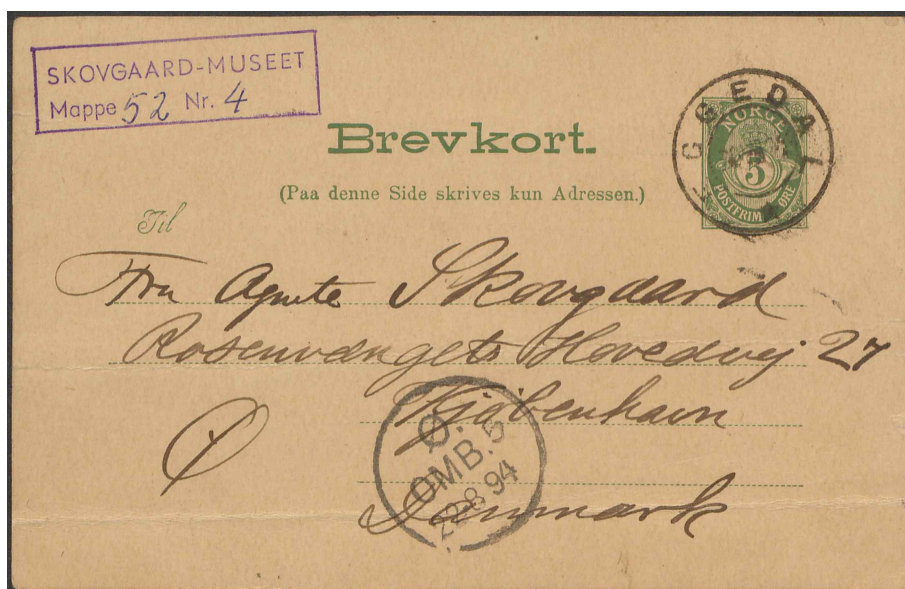 SKOVGAARD-MUSEET
Mappe 52 Nr. 4
Brevkort.
(Paa denne Side skrives kun Adressen.)
GGEDAL
NORGE
5
POSTFRIM ØRE
Til
Fru Agnete Skovgaard
Rosenvængets Hovedvej 27
Kjøbenhavn
Ø
Danmark
Ø.
OMB. 5
22 8 94